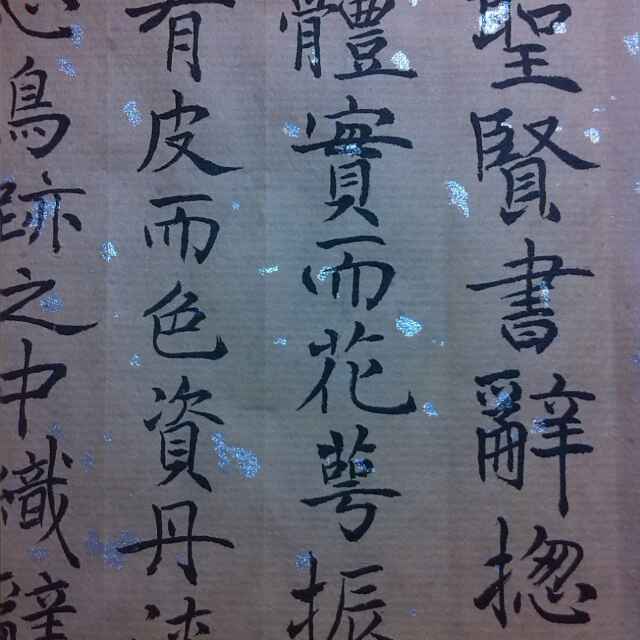 聖賢書辭揔
體實而花萼振
有皮而色資丹
心鳥跡之中織辭